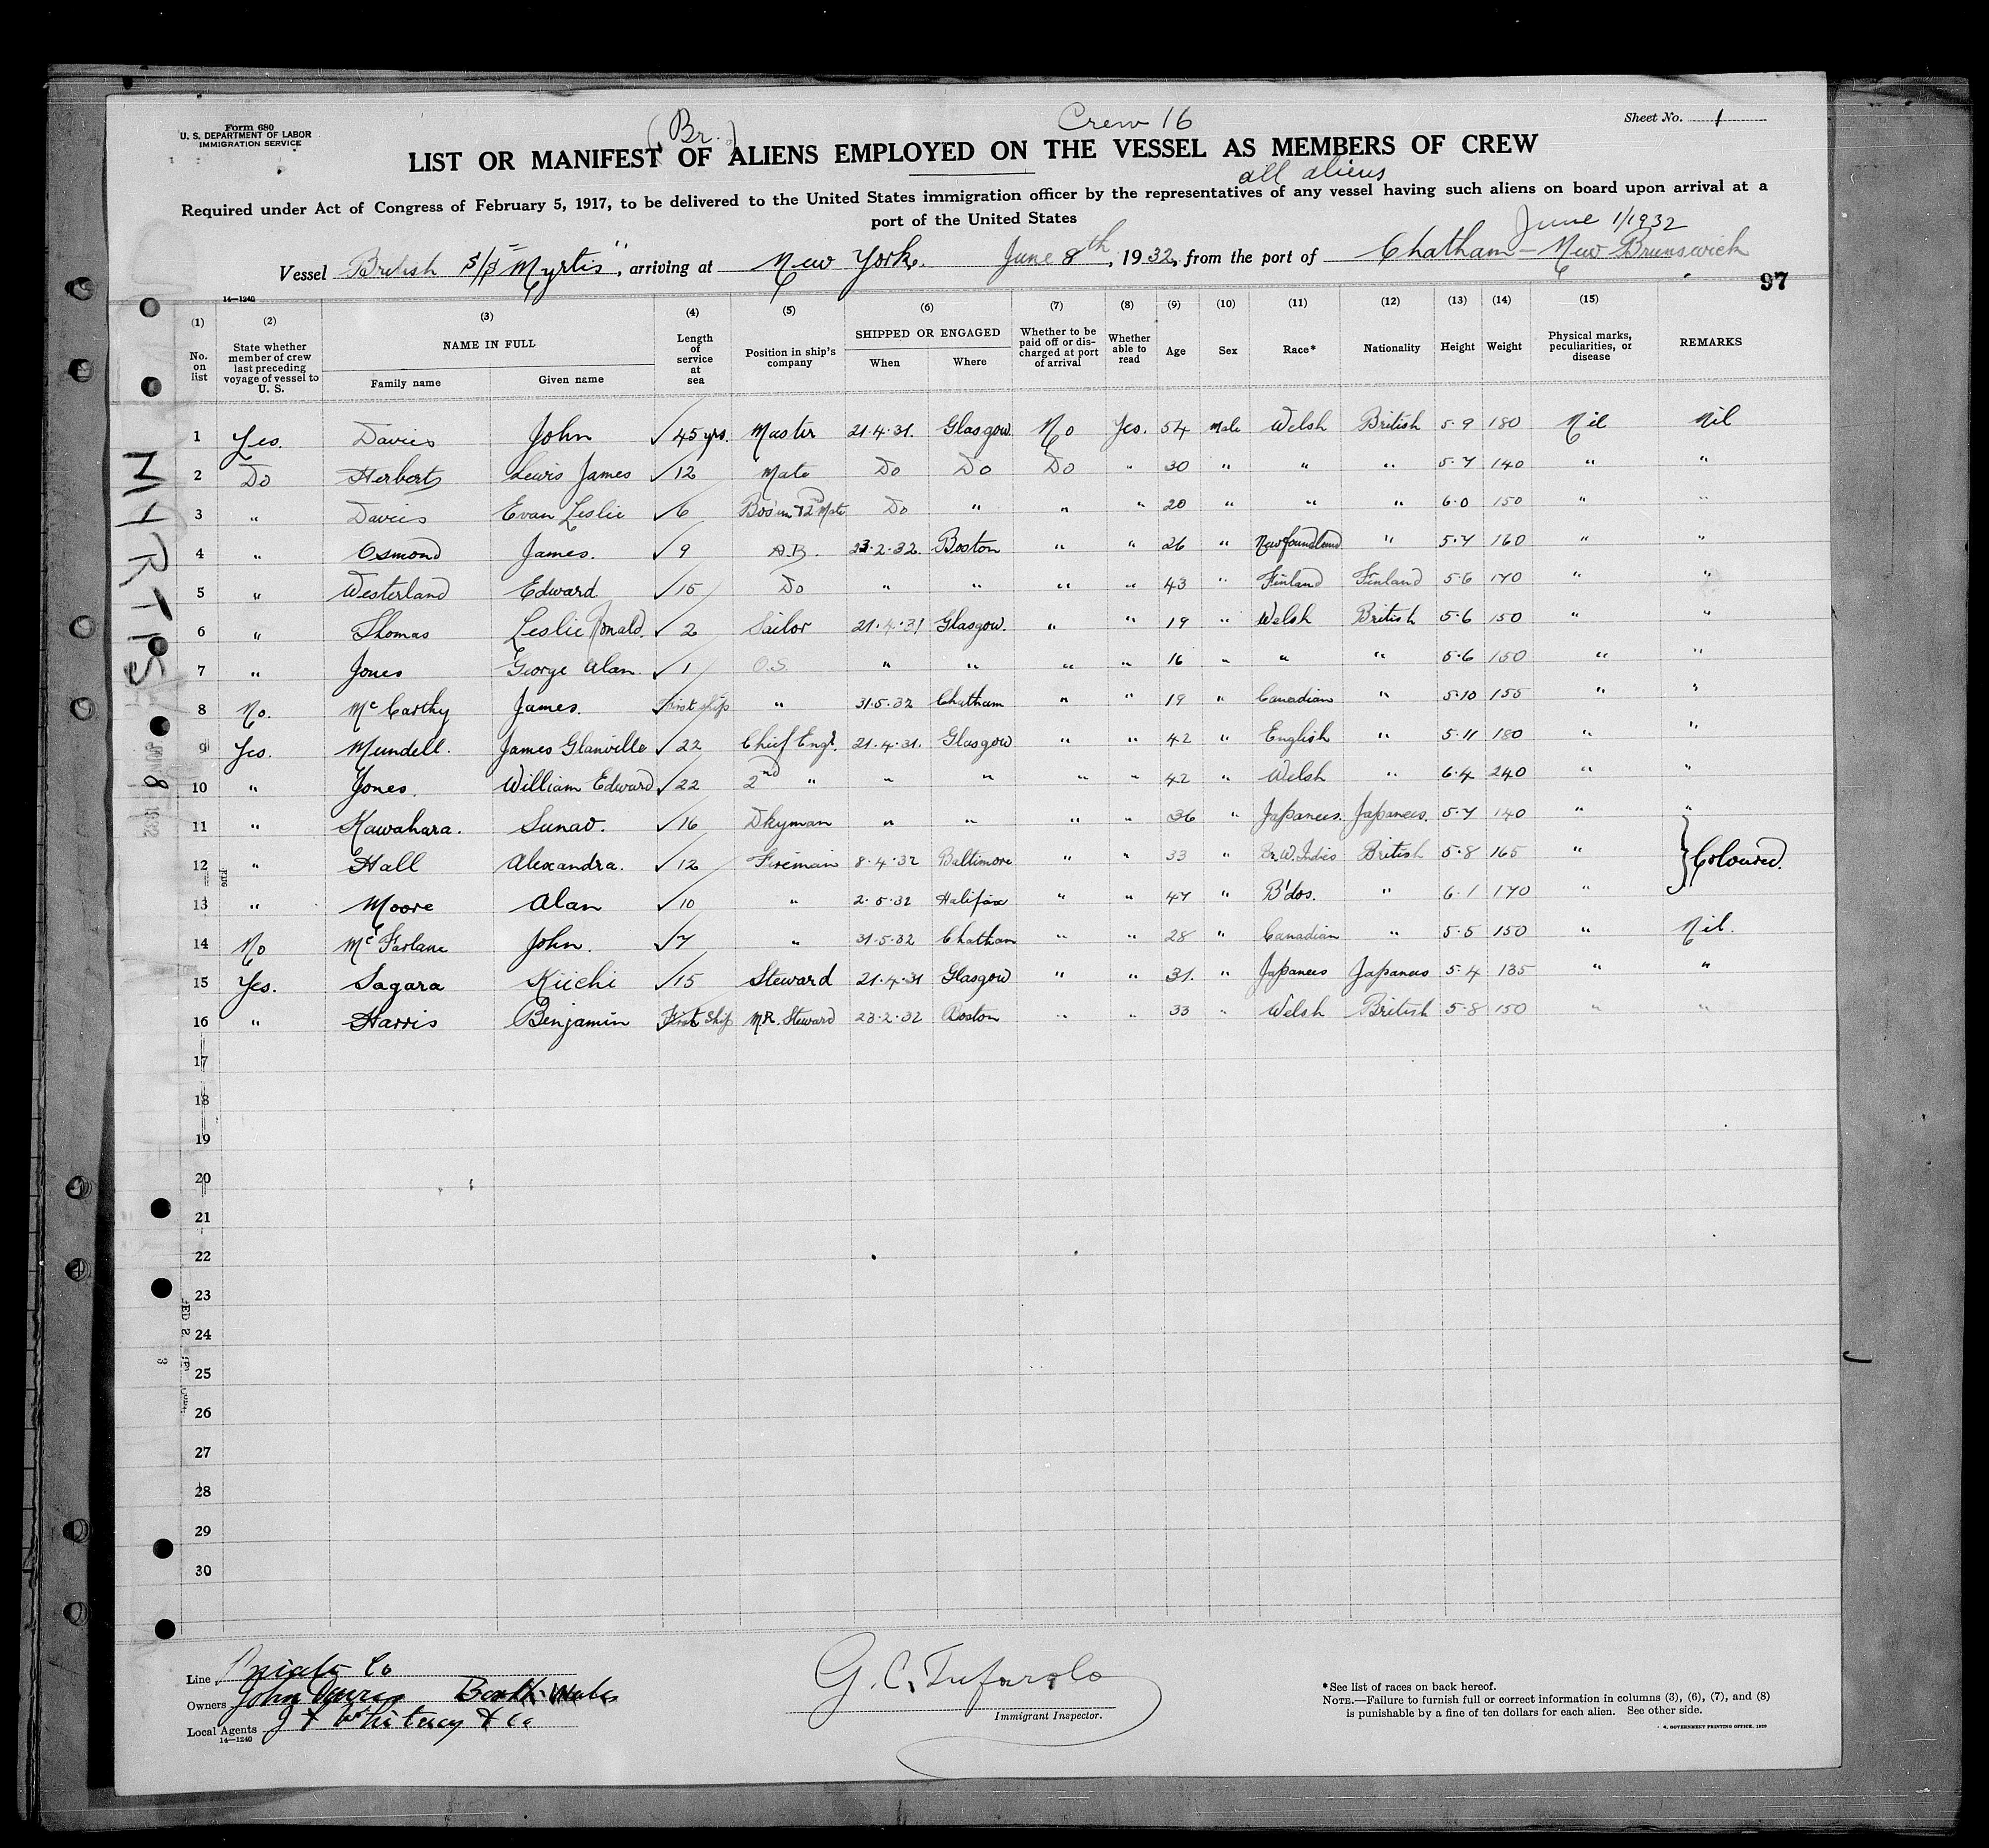 Form 680
U. S. DEPARTMENT OF LABOR
IMMIGRATION SERVICE
(Br.)
Crew 16
Sheet No. 1
LIST OR MANIFEST OF ALIENS EMPLOYED ON THE VESSEL AS MEMBERS OF CREW
all aliens
Required under Act of Congress of February 5, 1917, to be delivered to the United States immigration officer by the representatives of any vessel having such aliens on board upon arrival at a
port of the United States
June 1/1932
Vessel British S/S "Myrtis", arriving at New York. June 8th, 1932, from the port of Chatham - New Brunswick
97
14—1240
(1) (2) (3) (4) (5) (6) (7) (8) (9) (10) (11) (12) (13) (14) (15)
No. on list
State whether member of crew last preceding voyage of vessel to U. S.
NAME IN FULL
Family name
Given name
Length of service at sea
Position in ship's company
SHIPPED OR ENGAGED
When
Where
Whether to be paid off or discharged at port of arrival
Whether able to read
Age
Sex
Race*
Nationality
Height
Weight
Physical marks, peculiarities, or disease
REMARKS
1 Yes. Davies John ✓ 45 yrs. Master 21.4.31. Glasgow No Yes. 54 Male Welsh British 5.9 180 Nil Nil
2 Do Herbert Lewis James ✓ 12 Mate Do Do Do " 30 " " " 5.7 140 " "
3 " Davies Evan Leslie ✓ 6 Bos'un & 2nd Mate Do " " " 20 " " " 6.0 150 " "
4 " Osmond James. ✓ 9 A.B. 23.2.32. Boston " " 26 " Newfoundland " 5.7 160 " "
5 " Westerland Edward ✓ 15 Do " " " " 43 " Finland Finland 5.6 170 " "
6 " Thomas Leslie Ronald. ✓ 2 Sailor 21.4.31 Glasgow. " " 19 " Welsh British 5.6 150 " "
7 " Jones George Alan. ✓ 1 O.S. " " " " 16 " " " 5.6 150 " "
8 No. McCarthy James. ✓ First ship " 31.5.32 Chatham " " 19 " Canadian " 5.10 155 " "
9 Yes. Mundell. James Glanville ✓ 22 Chief Engr. 21.4.31. Glasgow " " 42 " English " 5.11 180 " "
10 " Jones. William Edward ✓ 22 2nd " " " " " 42 " Welsh " 6.4 240 " "
11 " Kawahara. Sunao. ✓ 16 Dkyman " " " " 36 " Japanees. Japanees. 5.7 140 " "
12 " Hall Alexandra. ✓ 12 Fireman 8.4.32 Baltimore " " 33 " Br. W. Indies British 5.8 165 " } Coloured.
13 " Moore Alan ✓ 10 " 2.5.32 Halifax " " 47 " B'dos. " 6.1 170 "
14 No McFarlane John. ✓ 7 " 31.5.32 Chatham " " 28 " Canadian " 5.5 150 " Nil.
15 Yes. Sagara Kiichi ✓ 15 Steward 21.4.31 Glasgow " " 31. " Japanees Japanees 5.4 135 " "
16 " Harris Benjamin First Ship M.R. Steward 23.2.32 Boston " " 33 " Welsh British 5.8 150 " "
17
18
19
20
21
22
23
24
25
26
27
28
29
30
MYRTIS
8 1932
Line Private Co
Owners John Davies
Local Agents J F Whitney & Co
14—1240
G. C. Tufarolo
Immigrant Inspector.
*See list of races on back hereof.
NOTE.—Failure to furnish full or correct information in columns (3), (6), (7), and (8)
is punishable by a fine of ten dollars for each alien. See other side.
GOVERNMENT PRINTING OFFICE. 1929